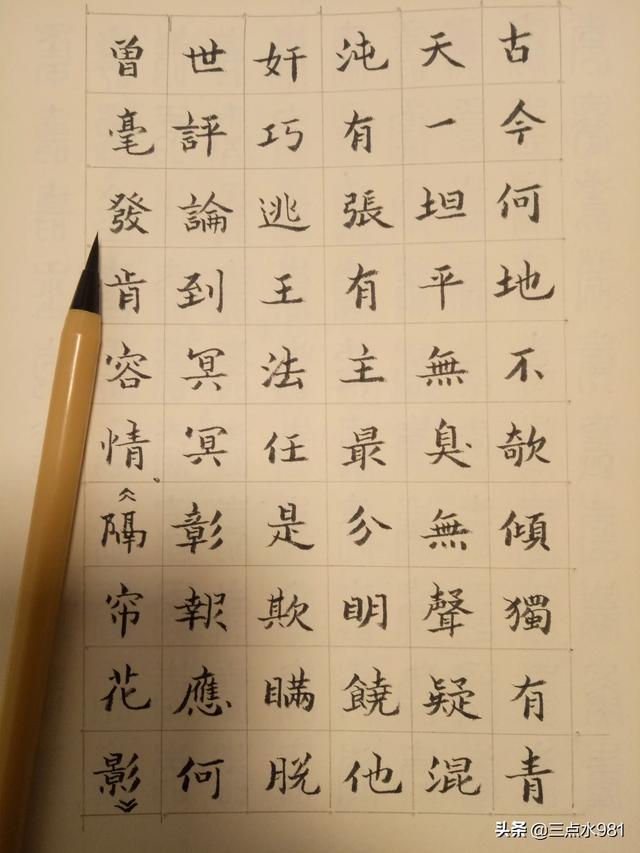 古今何地不欹傾獨有青
天一坦平無臭無聲疑混
沌有張有主最分明饒他
奸巧逃王法任是欺瞞脫
世評論到冥冥彰報應何
曾毫發肯容情《隔帘花影》
头条 @三点水981